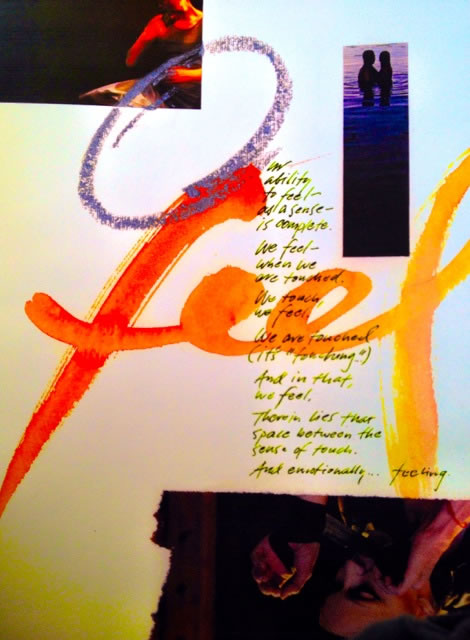 feel
Our
ability
to feel—
as a sense—
is complete.
We feel—
when we
are touched.
We touch,
we feel.
We are touched
(it's "touching")
And in that,
we feel.
Therein lies that
space between the
sense of touch.
And emotionally... feeling.